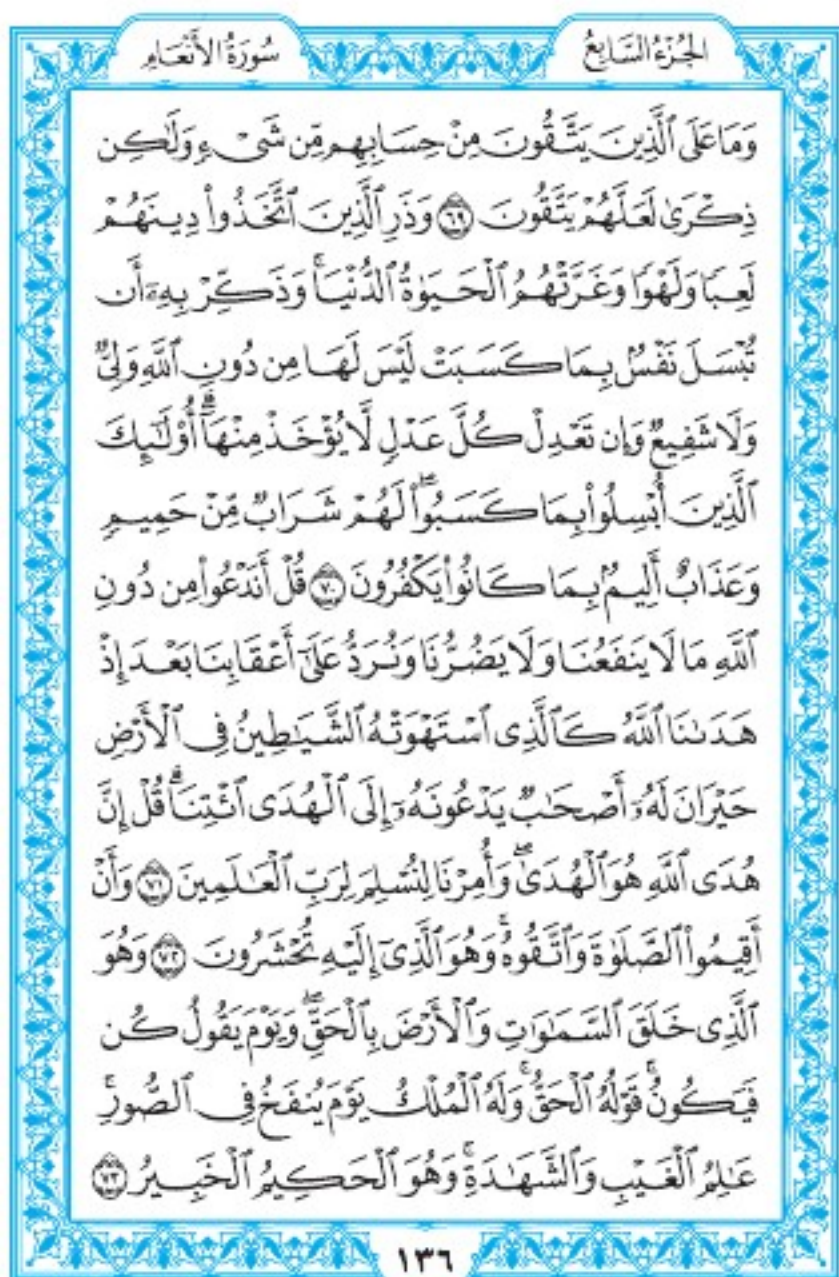 الجُزْءُ السَّابِعُ
سُورَةُ الأَنْعَامِ
وَمَا عَلَى ٱلَّذِينَ يَتَّقُونَ مِنْ حِسَابِهِم مِّن شَىْءٍ وَلَٰكِن
ذِكْرَىٰ لَعَلَّهُمْ يَتَّقُونَ ۝٦٩ وَذَرِ ٱلَّذِينَ ٱتَّخَذُوا۟ دِينَهُمْ
لَعِبًا وَلَهْوًا وَغَرَّتْهُمُ ٱلْحَيَوٰةُ ٱلدُّنْيَا ۚ وَذَكِّرْ بِهِۦٓ أَن
تُبْسَلَ نَفْسٌۢ بِمَا كَسَبَتْ لَيْسَ لَهَا مِن دُونِ ٱللَّهِ وَلِىٌّ
وَلَا شَفِيعٌ وَإِن تَعْدِلْ كُلَّ عَدْلٍ لَّا يُؤْخَذْ مِنْهَآ ۗ أُو۟لَٰٓئِكَ
ٱلَّذِينَ أُبْسِلُوا۟ بِمَا كَسَبُوا۟ ۖ لَهُمْ شَرَابٌ مِّنْ حَمِيمٍ
وَعَذَابٌ أَلِيمٌۢ بِمَا كَانُوا۟ يَكْفُرُونَ ۝٧٠ قُلْ أَنَدْعُوا۟ مِن دُونِ
ٱللَّهِ مَا لَا يَنفَعُنَا وَلَا يَضُرُّنَا وَنُرَدُّ عَلَىٰٓ أَعْقَابِنَا بَعْدَ إِذْ
هَدَىٰنَا ٱللَّهُ كَٱلَّذِى ٱسْتَهْوَتْهُ ٱلشَّيَٰطِينُ فِى ٱلْأَرْضِ
حَيْرَانَ لَهُۥٓ أَصْحَٰبٌ يَدْعُونَهُۥٓ إِلَى ٱلْهُدَى ٱئْتِنَا ۗ قُلْ إِنَّ
هُدَى ٱللَّهِ هُوَ ٱلْهُدَىٰ ۖ وَأُمِرْنَا لِنُسْلِمَ لِرَبِّ ٱلْعَٰلَمِينَ ۝٧١ وَأَنْ
أَقِيمُوا۟ ٱلصَّلَوٰةَ وَٱتَّقُوهُ ۚ وَهُوَ ٱلَّذِىٓ إِلَيْهِ تُحْشَرُونَ ۝٧٢ وَهُوَ
ٱلَّذِى خَلَقَ ٱلسَّمَٰوَٰتِ وَٱلْأَرْضَ بِٱلْحَقِّ ۖ وَيَوْمَ يَقُولُ كُن
فَيَكُونُ ۚ قَوْلُهُ ٱلْحَقُّ ۚ وَلَهُ ٱلْمُلْكُ يَوْمَ يُنفَخُ فِى ٱلصُّورِ ۚ
عَٰلِمُ ٱلْغَيْبِ وَٱلشَّهَٰدَةِ ۚ وَهُوَ ٱلْحَكِيمُ ٱلْخَبِيرُ ۝٧٣
١٣٦